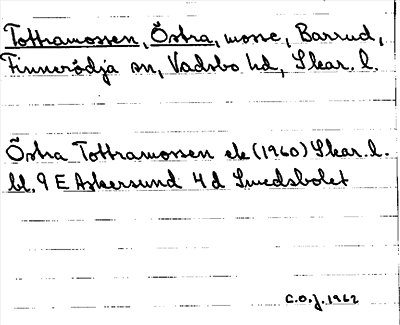 Tottramossen, Östra, mosse, Barrud,
Finnerödja sn, Vadsbo hd, Skar. l.
Östra Tottramossen ek (1960) Skar. l.
bl. 9 E Askersund 4 d Smedsbolet
C.O.J. 1962